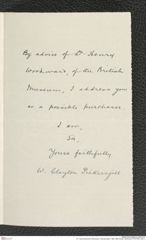 By advice of Dr Henry
Woodward, of the British
Museum, I address you
as a possible purchaser.
I am,
Sir,
Yours faithfully
W. Clayton Pickersgill